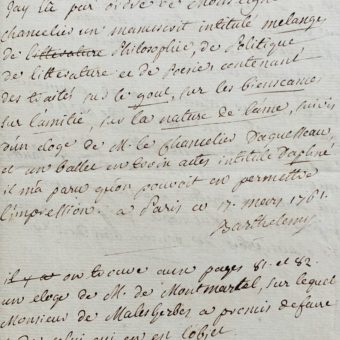 J'ay lu par ordre de Monseigneur
chancelier un manuscrit intitulé melanges
de litterature Philosophie, de Politique
de litterature et de Poesie contenant
des traités sur le gout, sur les bienseances
sur l'amitié, sur la nature de l'ame, suivis
d'un eloge de M. le Chancelier Daguesseau,
et un ballet en trois actes intitulé Daphné
il m'a paru qu'on pouvoit en permettre
l'impression. a Paris ce 17. mars 1761.
Barthelemy
il y a on trouve aux pages 81. et 82.
un eloge de M. de Montmartel, sur lequel
Monsieur de Malesherbes a promis de faire
celui qui en est l'objet.